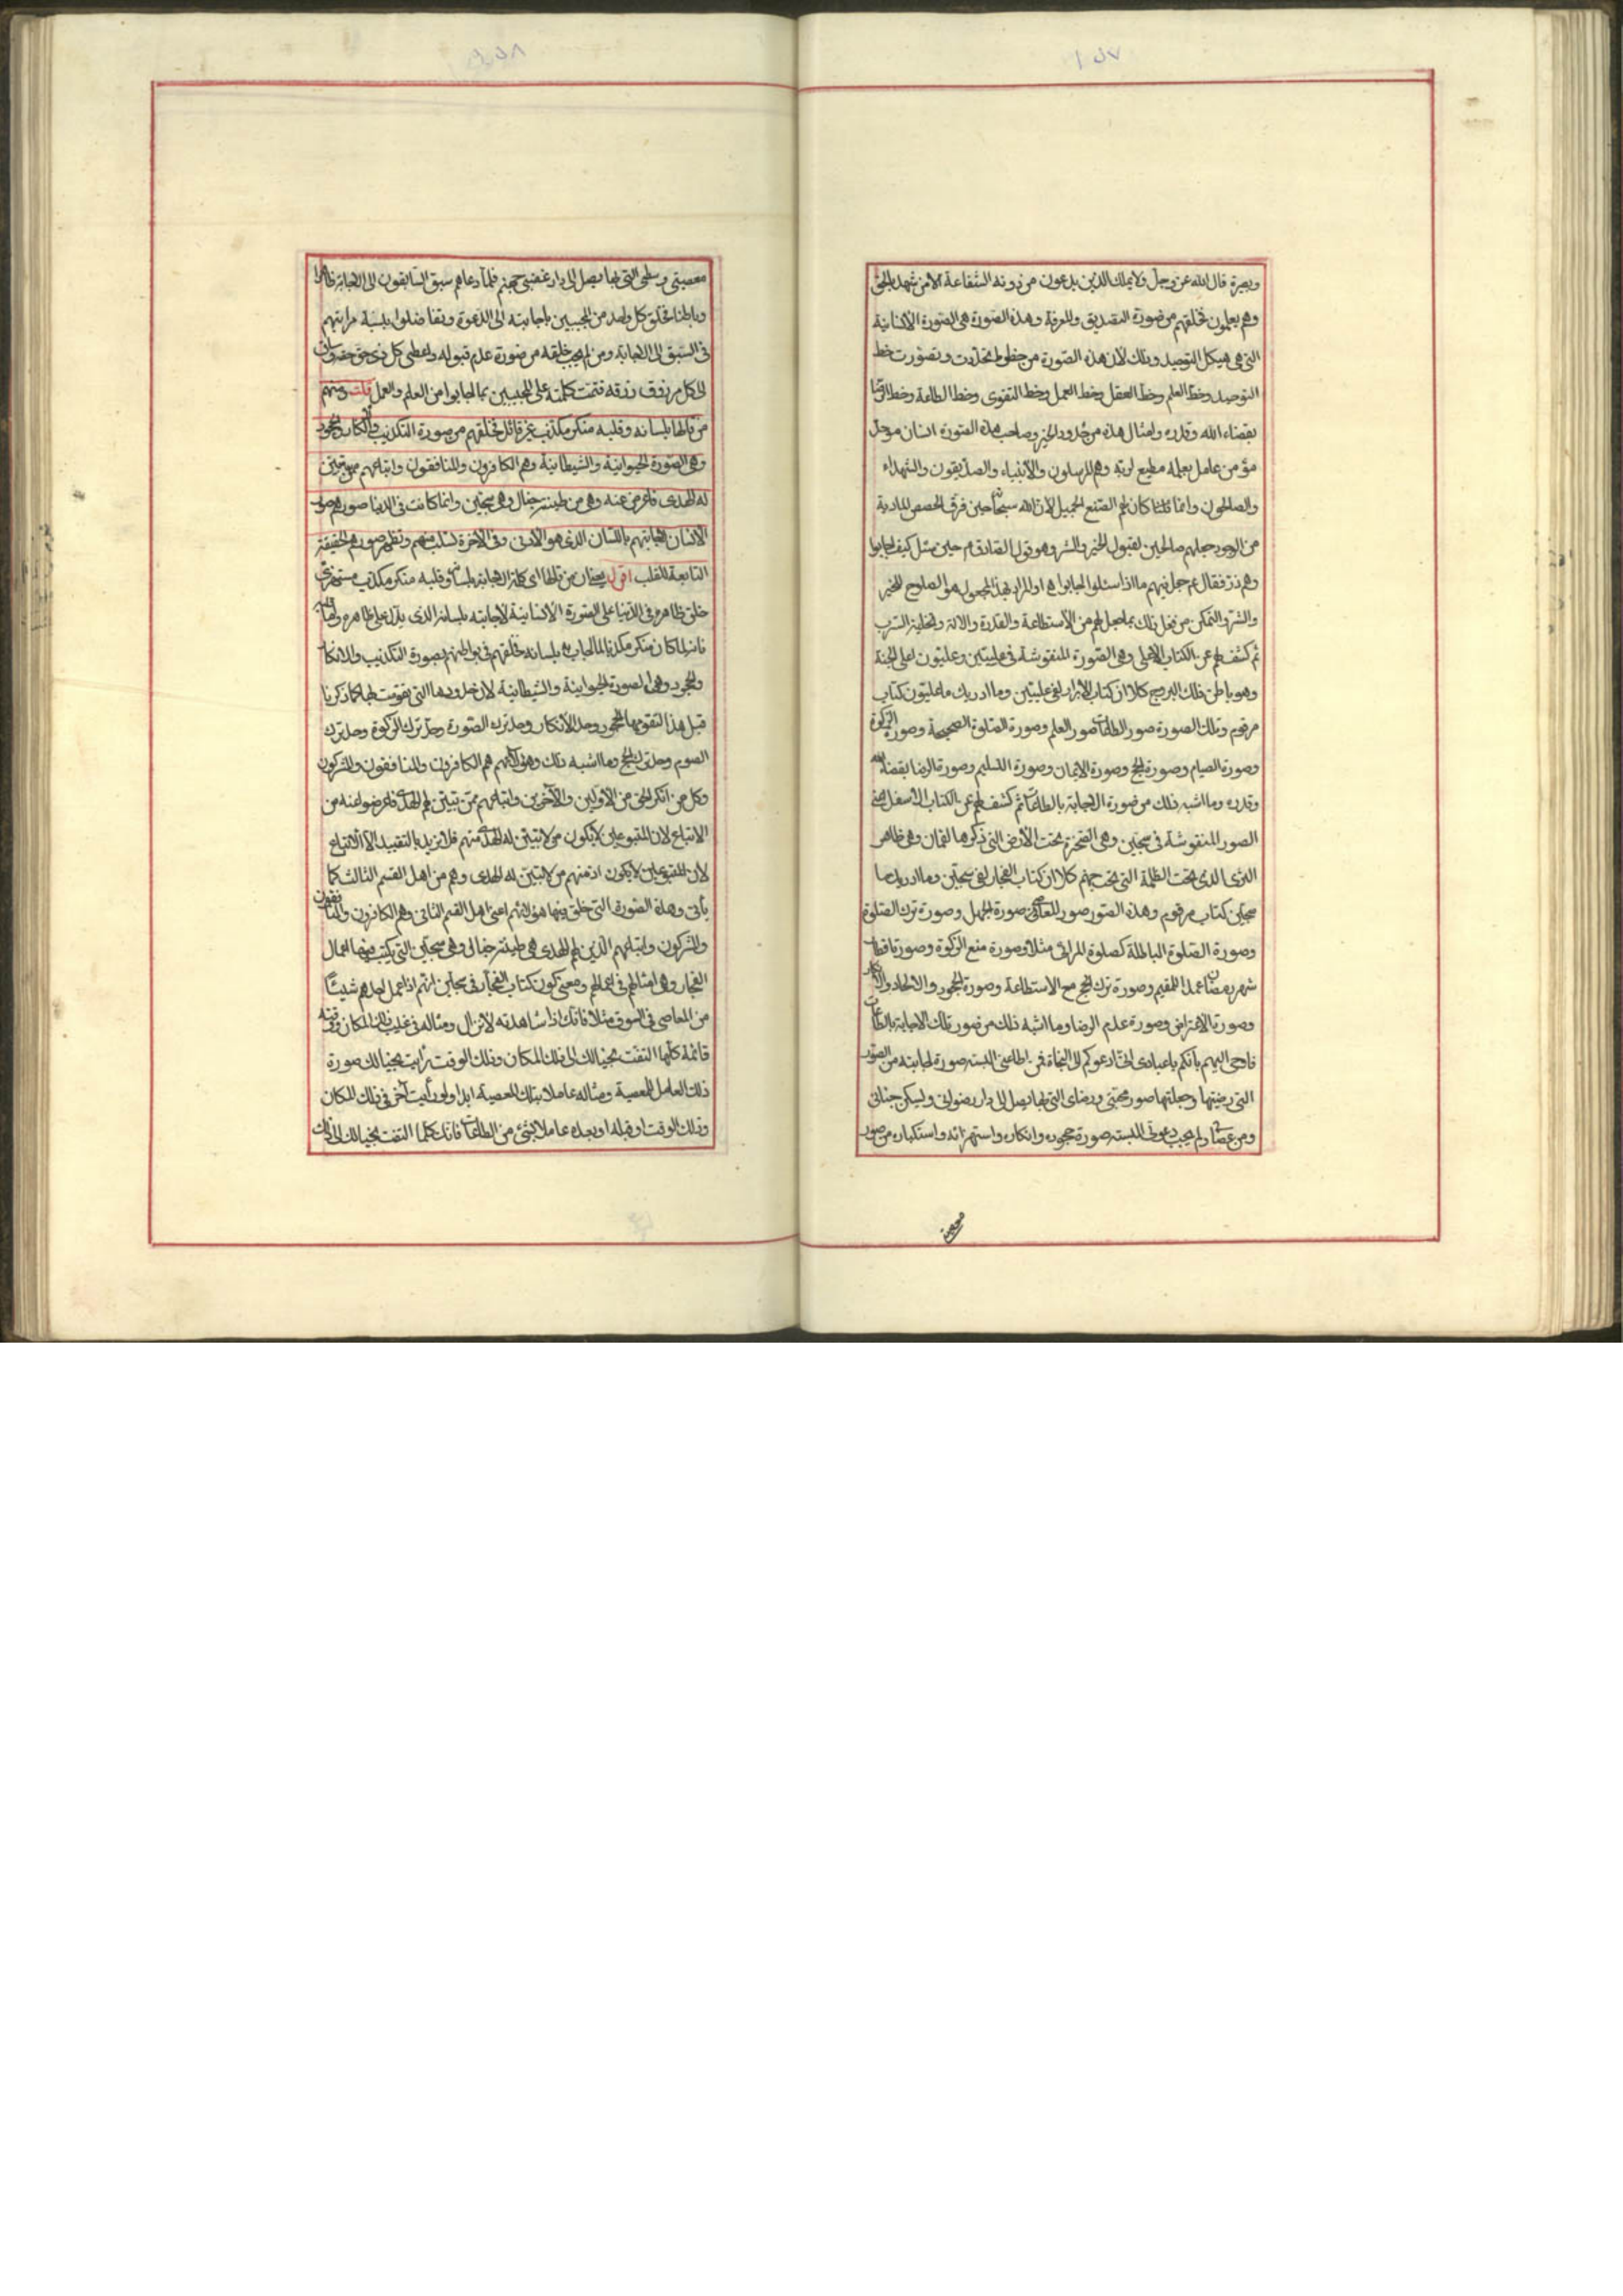 وبصيرة قال الله عز وجل ولا يملك الذين يدعون من دونه الشفاعة الا من شهد بالحق
وهم يعلمون فخلقهم من صورة التصديق والمعرفة وهذه الصورة هى الصورة الانسانية
التى هى هيكل التوحيد وذلك لان هذه الصورة من خطوط تحددت وتصورت خط
التوحيد وخط العلم وخط العقل وخط العمل وخط التقوى وخط الطاعة وخط الرضا
بقضاء الله وقدره وامثال هذه من حدود الخير وصاحب هذه الصورة انسان موحد
مؤمن عامل بعلمه مطيع لربه وهم المرسلون والانبياء والصديقون والشهداء
والصالحون وانما قلنا كان لهم الصنع الجميل لان الله سبحانه حين فرق الحصص المادية
من الوجود جعلهم صالحين لقبول الخير والشر وهو قول الصادق ع حين سئل كيف اجابوا
وهم ذر فقال ع جعل فيهم ما اذا سئلوا اجابوا هـ اذ المراد بهذا المجعول هو الصلوح للخير
والشر والتمكن من فعل ذلك بما جعل لهم من الاستطاعة والقدرة والالة وتخلية السرب
ثم كشف لهم عن الكتاب الاعلى وهى الصورة المنقوشة فى عليين وعليون اعلى الجنة
وهو باطن فلك البروج كلا ان كتاب الابرار لفى عليين وما ادريك ما عليون كتاب
مرقوم وتلك الصورة صور الطاعات صور العلم وصورة الصلوة الصحيحة وصور الزكوة
وصورة الصيام وصورة الحج وصورة الايمان وصورة التسليم وصورة الرضا بقضاء الله
وقدره وما اشبه ذلك من صورة الاجابة بالطاعات ثم كشف لهم عن الكتاب الاسفل هى
الصور المنقوشة فى سجين وهى الصخرة تحت الارض التى ذكرها لقمان وهى ظاهر
الثرى الذى تحت الظلمة التى تحت جهنم كلا ان كتاب الفجار لفى سجين وما ادريك ما
سجين كتاب مرقوم وهذه الصور صور المعاصى صورة الجهل وصورة ترك الصلوة
وصورة الصلوة الباطلة كصلوة المرائى مثلا وصورة منع الزكوة وصورة افطار
شهر رمضان عمدا للمقيم وصورة ترك الحج مع الاستطاعة وصورة الجحود والالحاد والانكار
وصورة الاعتراض وصورة عدم الرضا وما اشبه ذلك من صور تلك الاجابة بالطاعات
فاوحى اليهم بانكم يا عبادى انى ادعوكم الى النجاة فمن اطاعنى البسته صورة اجابته من الصور
التى رضيتها وجعلتها صور محبتى ورضاى التى بها يصل الى دار رضوانى ويسكن جنانى
ومن عصانى ولم يجب دعوتى البسته صورة جحوده وانكاره واستهزائه واستكباره من صور
معصيتى
معصيتى وسخطى التى بها يصل الى دار غضبى جهنم فلما دعاهم سبق السابقون الى الاجابة ظاهرا
وباطنا فخلق كل واحد من المجيبين باجابته الى الدعوة وتفاضلوا بنسبة مراتبهم
فى السبق الى الاجابة ومن لم يجب خلقه من صورة عدم قبوله واعطى كل ذى حق حقه وساق
الى كل مرزوق رزقه فتمت كلمته على المجيبين بما اجابوا من العلم والعمل قلت ومنهم
من قالها بلسانه وقلبه منكر مكذب غير قائل فخلقهم من صورة التكذيب والانكار والجحود
وهى الصورة الحيوانية والشيطانية وهم الكافرون والمنافقون واتباعهم ممن تبين
له الهدى فاعرض عنه وهى من طينة خبال وهى سجين وانما كانت فى الدنيا صورهم صورة
الانسان لاجابتهم باللسان الذى هو الادنى وفى الاخرة تسلب منهم وتظهر صورهم الحقيقة
التابعة للقلب اقول يعنى ان من قالها اى كلمة الاجابة بلسانه وقلبه منكر مكذب مستهزئ
خلق ظاهره فى الدنيا على الصورة الانسانية لاجابته بلسانه الذى يدل على ظاهره واما
فانه لما كان منكر مكذبا لما اجاب به بلسانه خلقهم فى بواطنهم بصورة التكذيب والانكار
والجحود وهى الصورة الحيوانية والشيطانية لان حدودها التى تقومت بها كما ذكرنا
قبل هذا التقوم بها الجحود وحد الانكار وحد ترك الصورة وحد ترك الزكوة وحد ترك
الصوم وحد ترك الحج وما اشبه ذلك وهؤلاء هم الكافرون والمنافقون والمشركون
وكل من انكر الحق من الاولين والآخرين واتباعهم ممن تبين لهم الهدى فاعرضوا عنه من
الاتباع لان المتبوعين لا يكون من لا يتبين له الهدى منهم فلا نريد بالتقييد الا الاتباع
لان المتبوعين لا يكون احد منهم من لا تبين له الهدى وهم من اهل القسم الثالث كما
يأتى وهذه الصورة التى خلق منها هؤلاء اعنى اهل القسم الثانى وهم الكافرون والمنافقون
والمشركون واتباعهم الذين لهم الهدى هى طينة خبال وهى سجين التى يكتب فيها اعمال
الفجار وهى امثالهم فى اعمالهم ومعنى كون كتاب الفجار فى سجين انهم اذا عمل احدهم شيئا
من المعاصى فى السوق مثلا فانك اذا شاهدته لا تزال ومثاله فى غيب ذلك المكان ووقته
قائمة كلما التفت بخيالك الى ذلك المكان وذلك الوقت رأيت بخيالك صورة
ذلك العامل للمعصية ومثاله عاملا بتلك المعصية ابدا ولو رأيت آخر فى ذلك المكان
وذلك الوقت او قبله او بعده عاملا بشئ من الطاعات فانك كلما التفت بخيالك الى ذلك